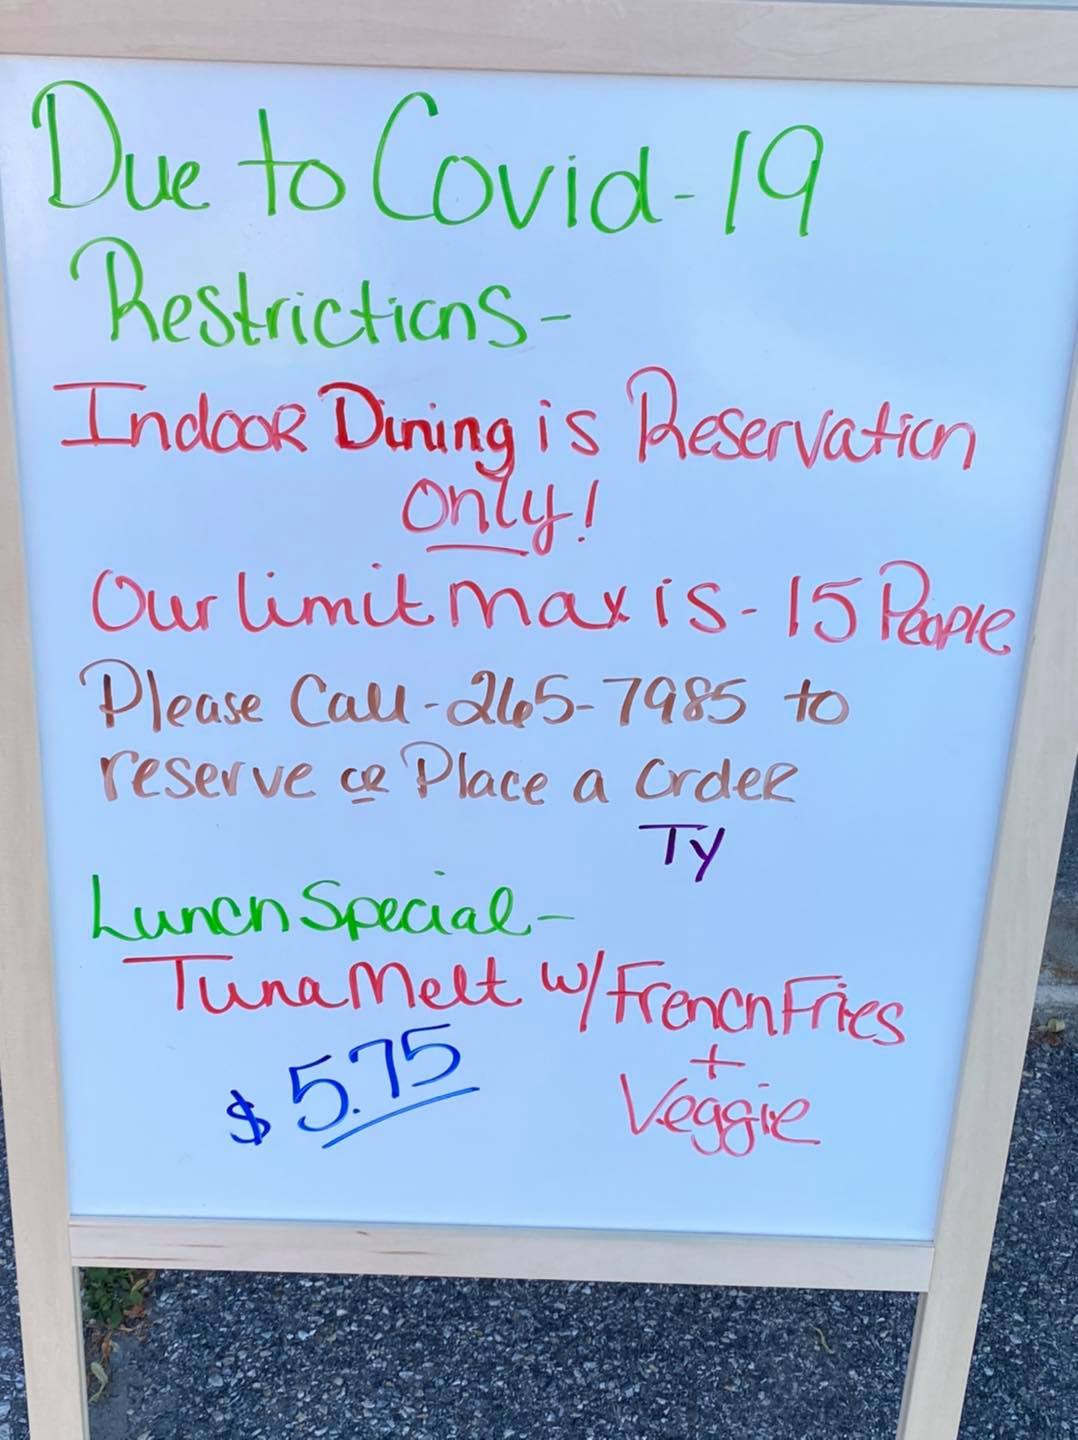 Due to Covid-19
Restrictions-
Indoor Dining is Reservation
Only!
Our limit max is - 15 People
Please Call - 265-7985 to
reserve or Place a Order
Ty
Lunch Special -
Tuna Melt w/ French Fries
+
Veggie
$5.75